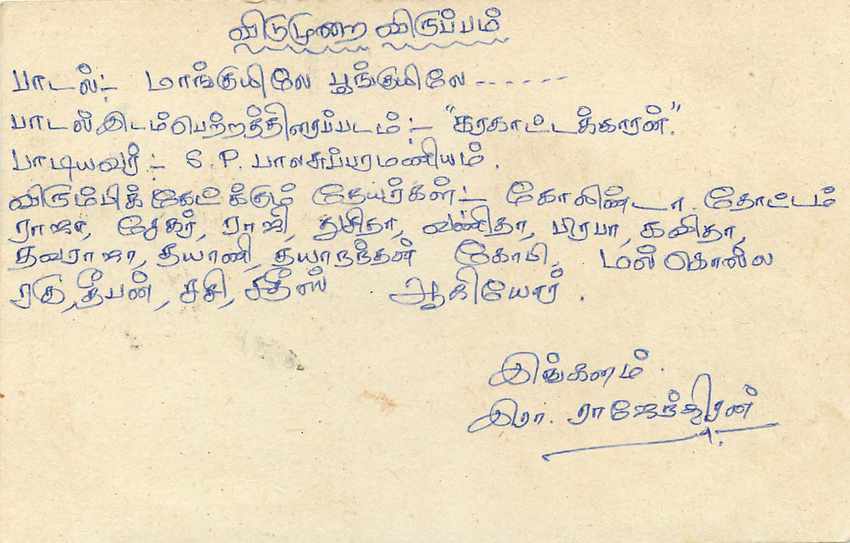 விடுமுறை விருப்பம்
பாடல்:- மாங்குயிலே பூங்குயிலே ------
பாடல் இடம்பெற்றத்திரைப்படம்:- "கரகாட்டக்காரன்".
பாடியவர்:- S.P. பாலசுப்பரமணியம்.
விரும்பிக் கேட்க்கும் நேயர்கள்:- கோலிண்டா தோட்டம்
ராஜா, சேகர், ராஜி, துசிதா, வனிதா, பிரபா, கவிதா,
தவராஜா, தயாணி, தயாநந்தன் கோபி,
ரகு, தீபன், சசி, சதீஸ் ஆகியோர்.
இங்கனம்.
இரா. ராஜேந்திரன்